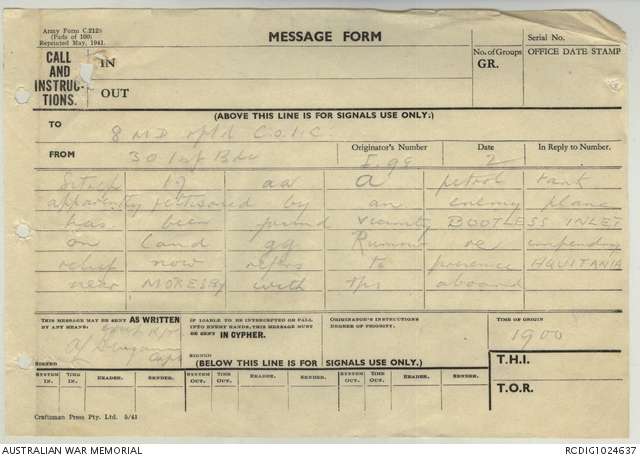 Army Form C.2128
(Pads of 100)
Reprinted May, 1941.
MESSAGE FORM
Serial No.
CALL
AND
INSTRUC-
TIONS.
IN
OUT
No. of Groups
GR.
OFFICE DATE STAMP
(ABOVE THIS LINE IS FOR SIGNALS USE ONLY:)
TO 8 MD rptd C.O.I.C.
FROM 30 Inf Bde
Originator's Number
I.99
Date
2
In Reply to Number.
Sitrep 17 aa a petrol tank
apparently jettisoned by an enemy plane
has been found vicinity BOOTLESS INLET
on land gg Rumour re impending
relief now refers to presence AQUITANIA
near MORESBY with tps aboard
THIS MESSAGE MAY BE SENT AS WRITTEN
BY ANY MEANS:
IF LIABLE TO BE INTERCEPTED OR FALL
INTO ENEMY HANDS, THIS MESSAGE MUST
BE SENT IN CYPHER.
ORIGINATOR'S INSTRUCTIONS
DEGREE OF PRIORITY.
TIME OF ORIGIN
1900
SIGNED
Capt
SIGNED
(BELOW THIS LINE IS FOR SIGNALS USE ONLY.)
T.H.I.
T.O.R.
SYSTEM IN. TIME IN. READER. SENDER. SYSTEM OUT. TIME OUT. READER. SENDER. SYSTEM OUT. TIME OUT. READER. SENDER.
Craftsman Press Pty. Ltd. 5/41
AUSTRALIAN WAR MEMORIAL
RCDIG1024637